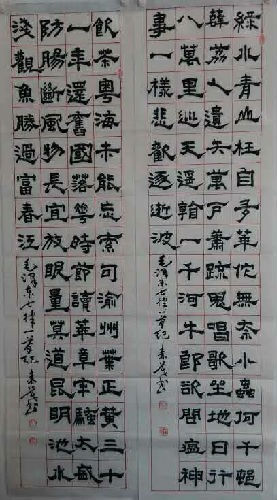 綠水青山枉自多華佗無奈小蟲何千邨
薜荔人遺矢萬戶蕭疏鬼唱歌坐地日行
八萬里巡天遙看一千河牛郎欲問瘟神
事一樣悲歡逐逝波
毛澤東七律一首
飲茶粵海未能忘索句渝州葉正黃三十
一年還舊國落花時節讀華章牢騷太盛
防腸斷風物長宜放眼量莫道昆明池水
淺觀魚勝過富春江
毛澤東七律一首